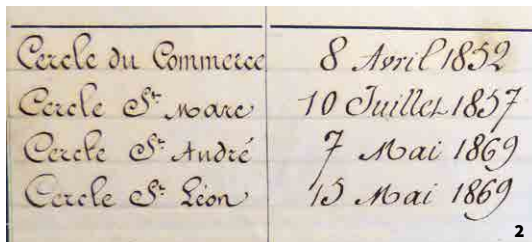 Cercle du Commerce 8 Avril 1852
Cercle St Marc 10 Juillet 1857
Cercle St André 7 Mai 1869
Cercle St Léon 15 Mai 1869
2